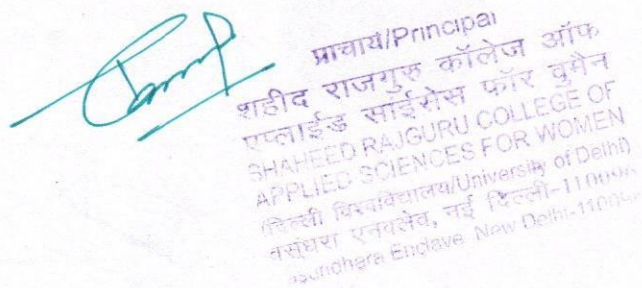 प्राचार्य/Principal
शहीद राजगुरु कॉलेज ऑफ
एप्लाईड साईंसेस फॉर वुमैन
SHAHEED RAJGURU COLLEGE OF
APPLIED SCIENCES FOR WOMEN
(दिल्ली विश्वविद्यालय/University of Delhi)
वसुंधरा एनक्लेव, नई दिल्ली-110096
Enclave New Delhi-11009